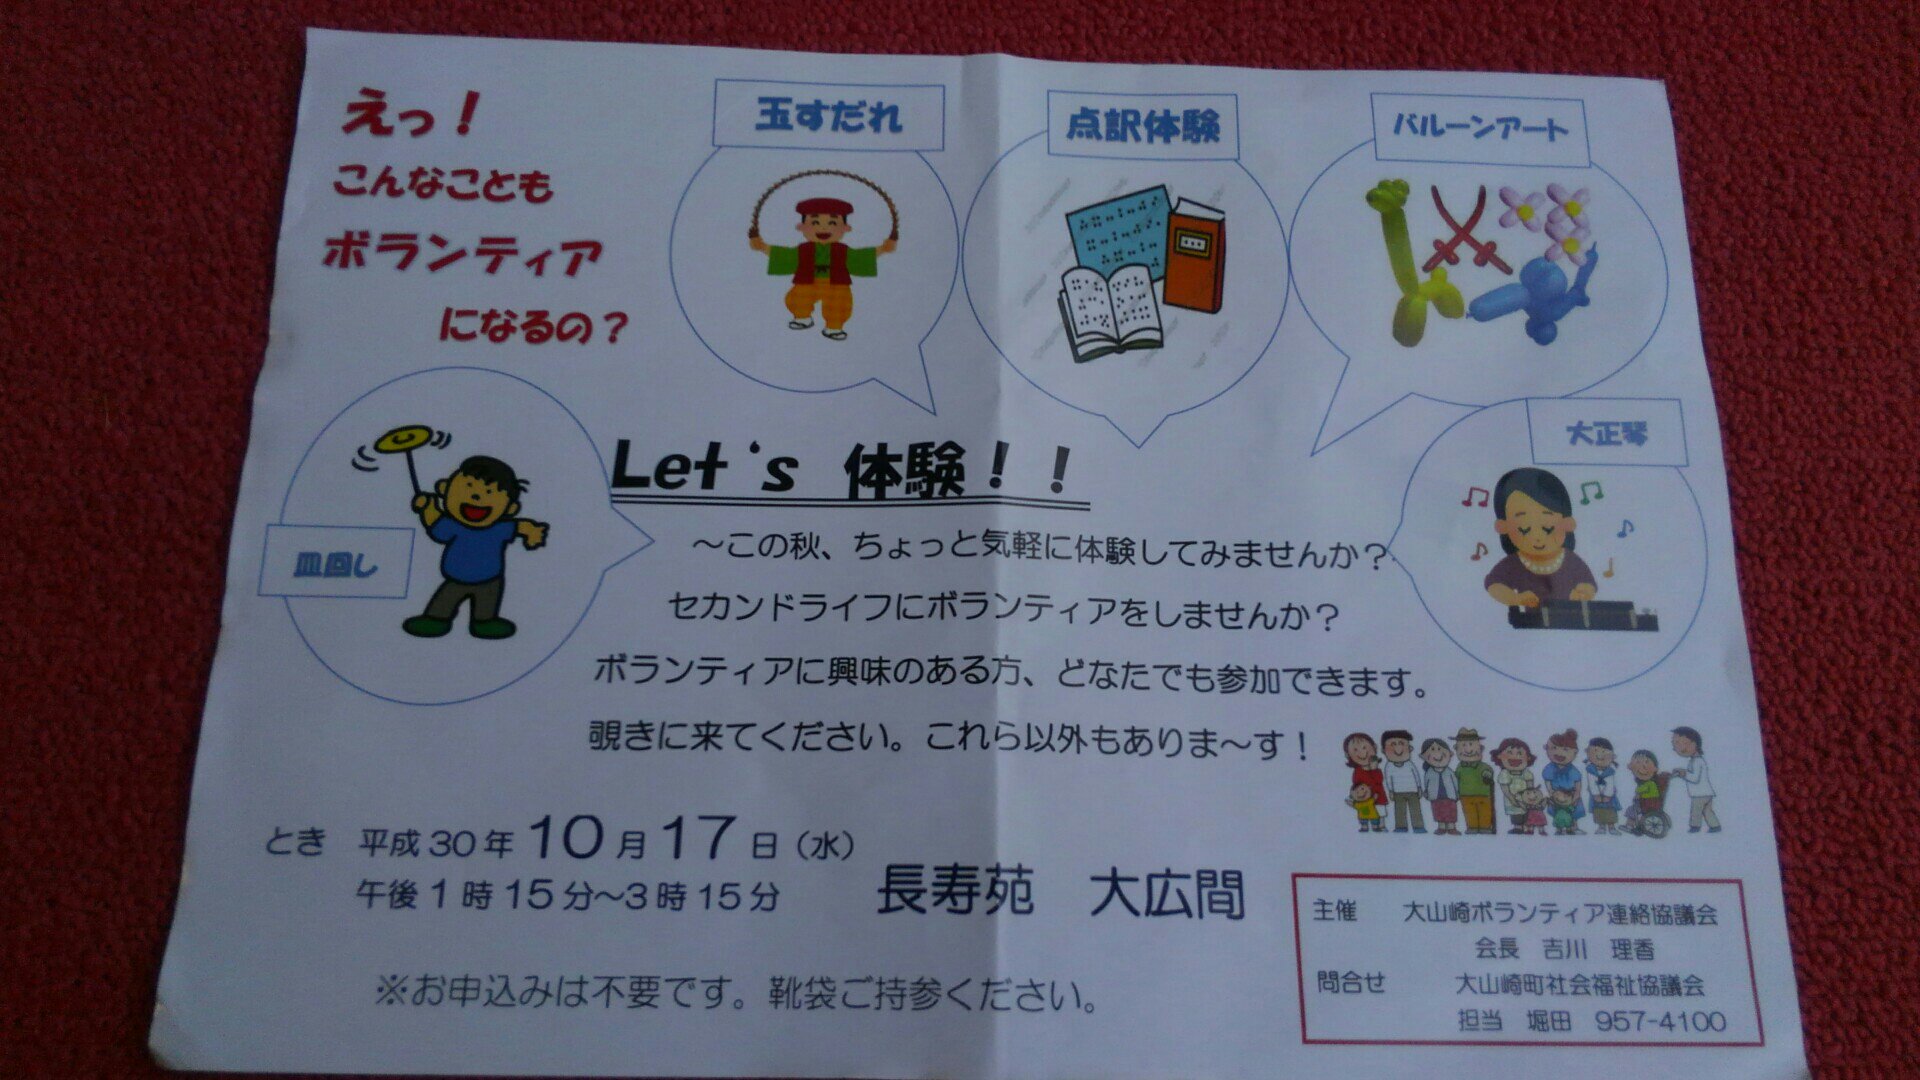 えっ！
こんなことも
ボランティア
になるの？
玉すだれ
点訳体験
バルーンアート
皿回し
大正琴
Let‘s 体験！！
～この秋、ちょっと気軽に体験してみませんか？
セカンドライフにボランティアをしませんか？
ボランティアに興味のある方、どなたでも参加できます。
覗きに来てください。これら以外もありま～す！
とき 平成30年10月17日（水）
午後1時15分～3時15分
長寿苑 大広間
※お申込みは不要です。靴袋ご持参ください。
主催 大山崎ボランティア連絡協議会
会長 吉川 理香
問合せ 大山崎町社会福祉協議会
担当 堀田 957-4100